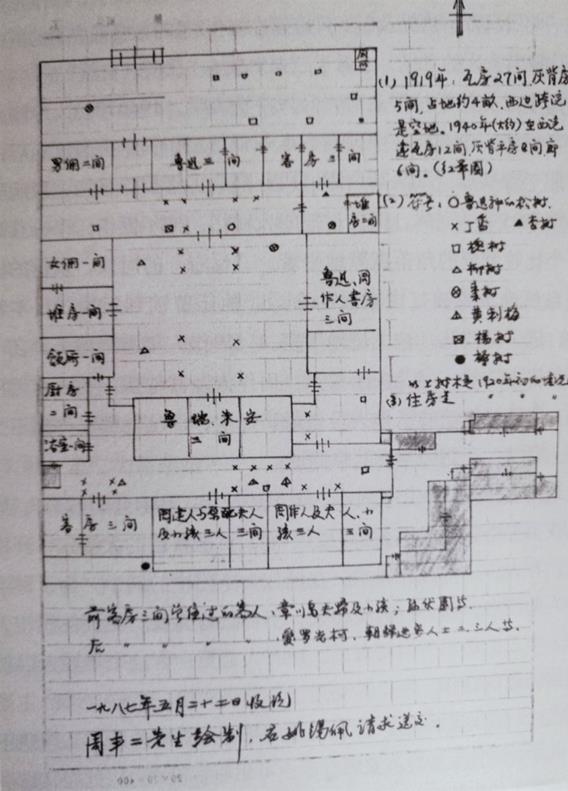 (1) 1919年，瓦房27间，灰背房
5间，占地约4亩，西边跨院
是空地。1940年(大约)在西院
建瓦房12间，灰背平房8间
6间。(红章圈)
(2) 符号：○鲁迅种的松树
×丁香 ▲杏树
□槐树
△柳树
枣树
黄刺梅
杨树
●椿树
以上树木是1920年初的情况
(3) 住房是 〃 〃 〃
厕所
男佣二间
鲁迅三间
客房三间
堆房二间
女佣一间
堆房一间
鲁迅、周作人客房三间
厨房二间
浴室一间
鲁瑞、朱安三间
客房三间
周建人与原配夫人及小孩三人 三间
周作人及夫人、小孩三人 三间
前客房三间曾住过的客人，章川岛夫妇及小孩；
后 〃 〃 〃 〃 爱罗先珂，朝鲜进步人士二、三人等。
一九八七年五月二十二日收到
周丰二先生绘制，姚锡佩请求送交。
20×20=400